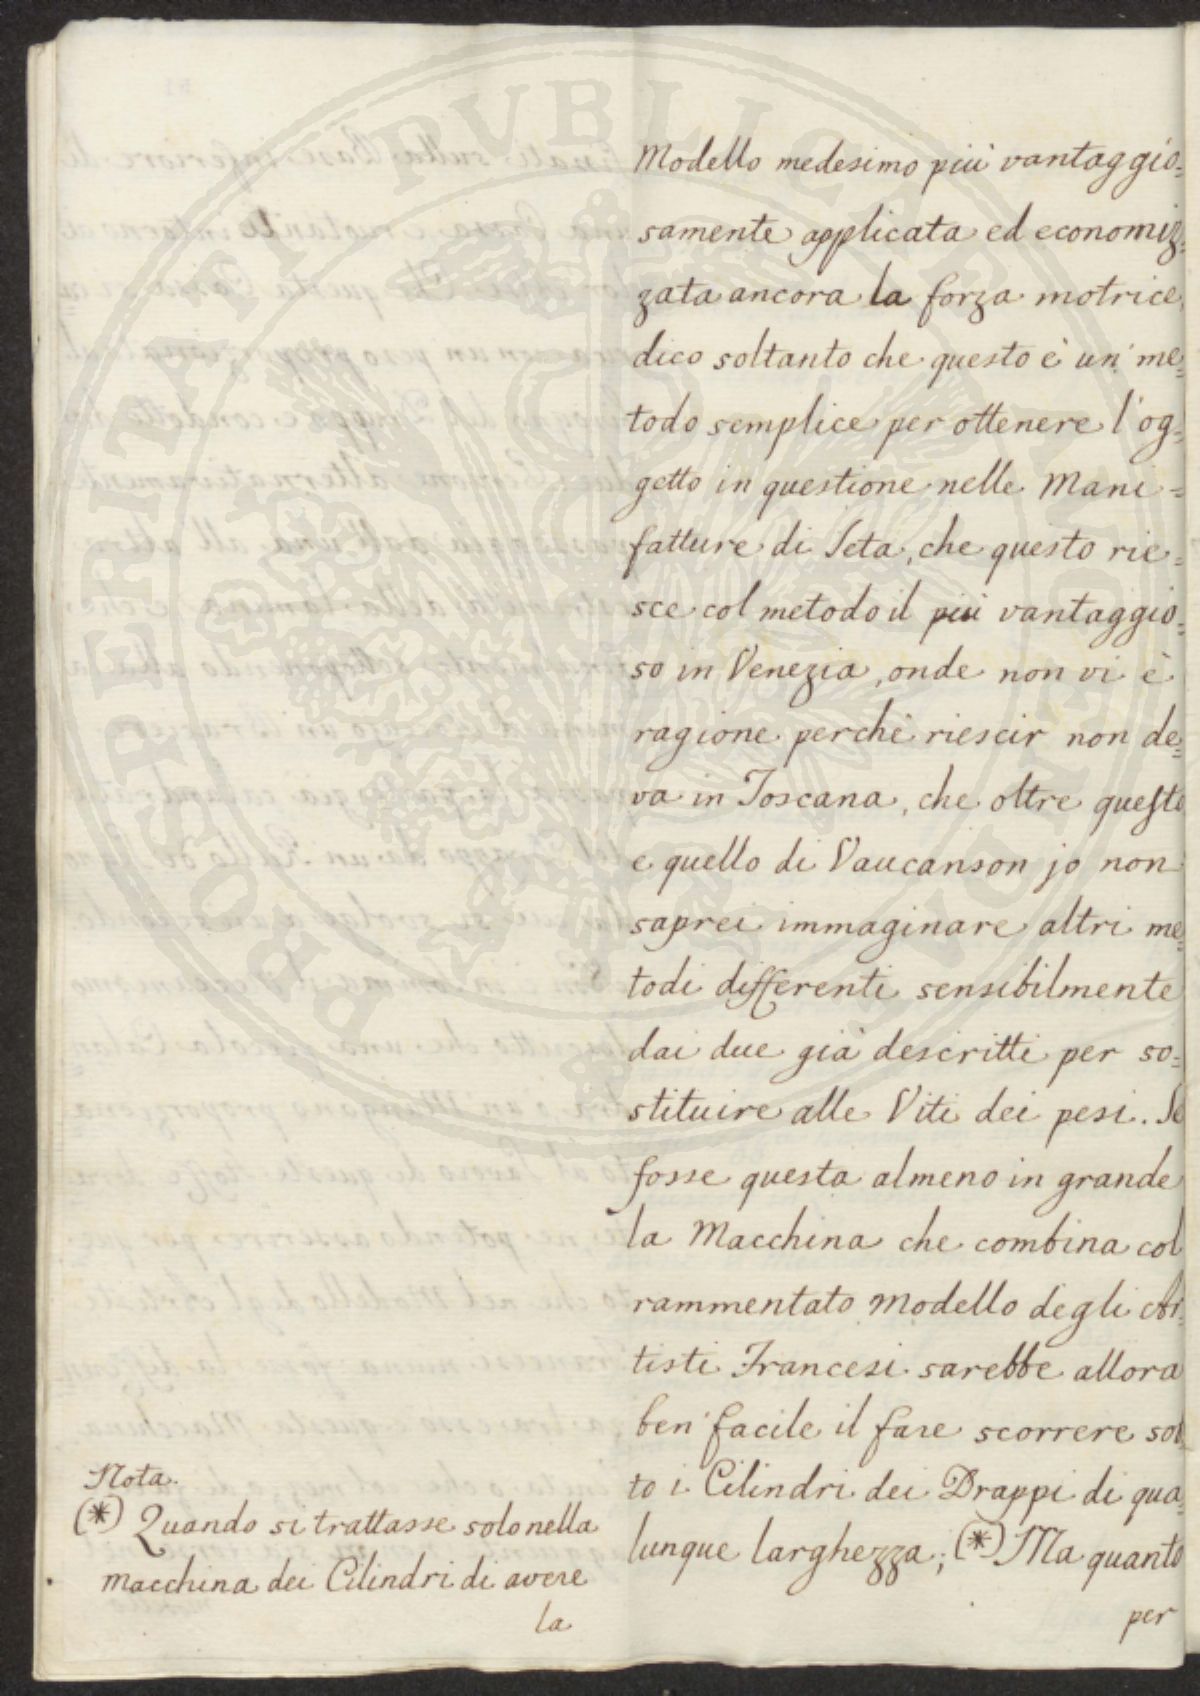 Modello medesimo più vantaggio=
samente applicata ed economiz=
zata ancora la forza motrice,
dico soltanto che questo è un' me=
todo semplice per ottenere l'og=
getto in questione nelle Mani=
fatture di Seta, che questo rie=
sce col metodo il più vantaggio=
so in Venezia, onde non vi è
ragione perchè riescir non de=
va in Toscana, che oltre questo
e quello di Vaucanson jo non
saprei immaginare altri me=
todi differenti sensibilmente
dai due già descritti per so=
stituire alle Viti dei pesi. Se
fosse questa almeno in grande
la Macchina che combina col
rammentato Modello degli Ar=
tisti Francesi sarebbe allora
ben' facile il fare scorrere sot
to i Cilindri dei Drappi di qua=
lunque larghezza; (*) Ma quanto
per
Nota.
(*) Quando si trattasse solo nella
macchina dei Cilindri di avere
la
PROSPERITATI PVBLICAE